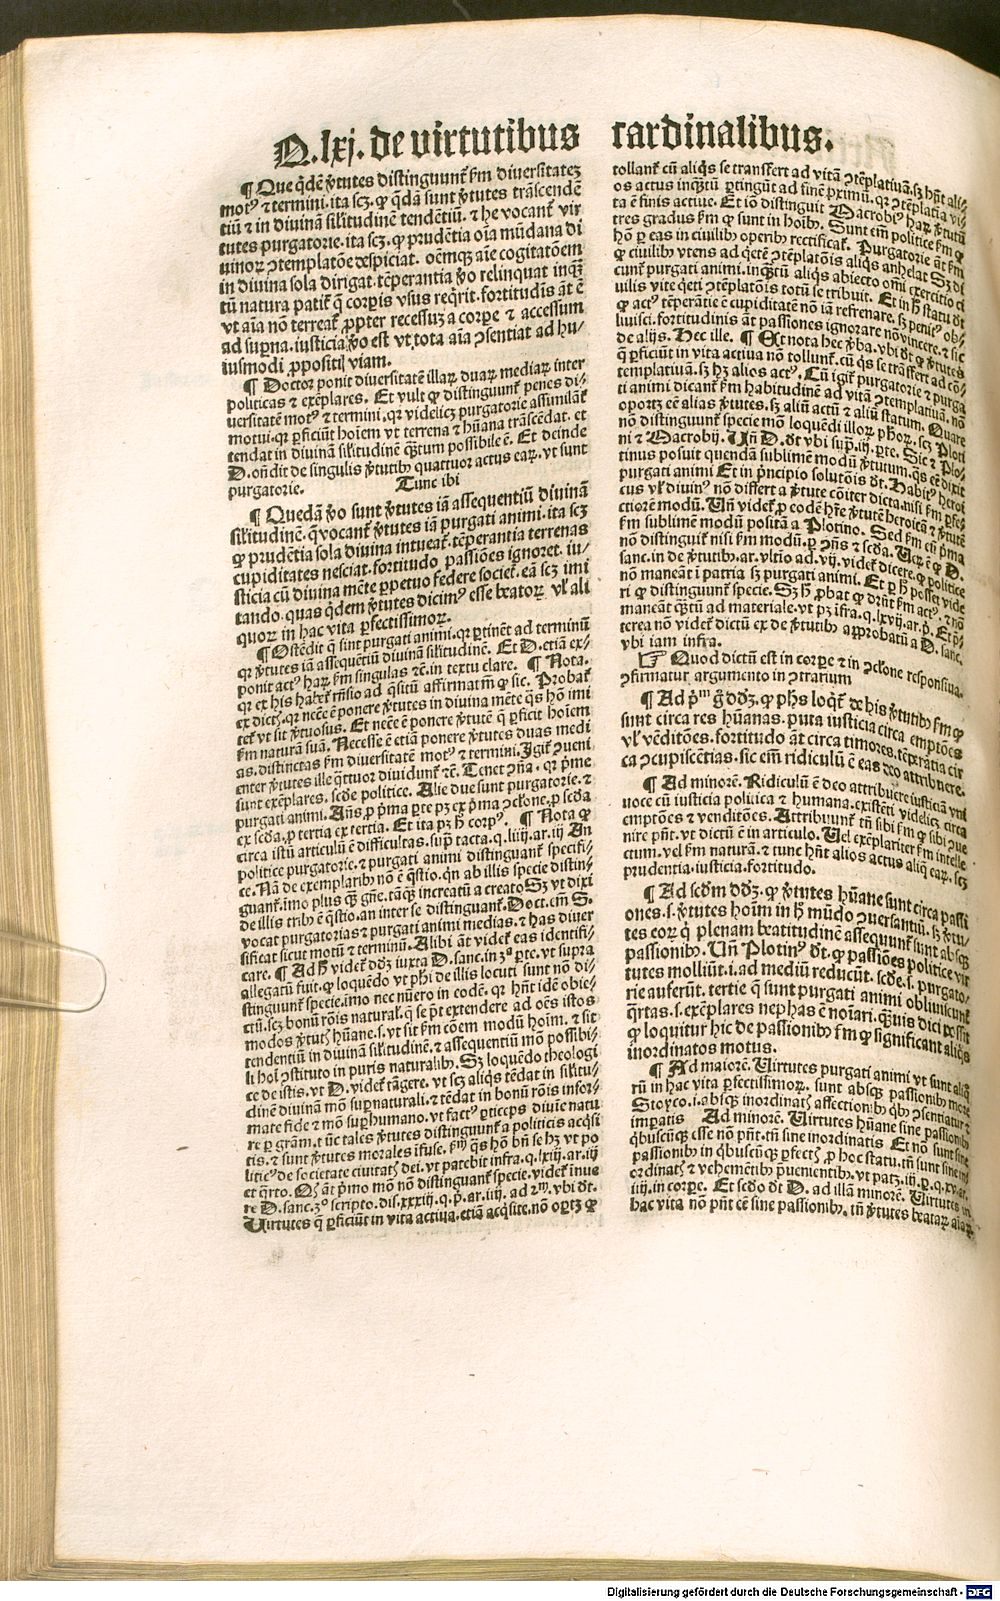 Q.lxj. de virtutibus cardinalibus.
¶ Que q̄dē v̄tutes distinguunt̄ ẜm diuersitatez
motꝰ ⁊ termini. ita scꝫ. ꝙ q̄dā sunt v̄tutes trāscendē
tiū ⁊ in diuinā sil̄itudinē tendētiū. ⁊ he vocant̄ vir
tutes purgatorie. ita scꝫ. ꝙ prudētia oīa mūdana di
uinoꝝ ꝯtemplatōe despiciat. oēmqꝫ aīe cogitatōem
in diuina sola dirigat. tēperantia v̄o relinquat inqꝫ̄
tū natura patit̄ q̄ corpis vsus reqrit. fortitudīs āt ē
vt aīa nō terreat̄ ꝓpter recessuꝫ a corpe ⁊ accessum
ad supna. iusticia v̄o est vt tota aīa ꝯsentiat ad hu⸗
iusmodi ꝓpositi viam.
¶ Doctor ponit diuersitatē illaꝝ duaꝝ mediaꝝ inter
politicas ⁊ exēplares. Et vult ꝙ distinguunt̄ penes di⸗
uersitatē motꝰ ⁊ termini. qꝛ videlicꝫ purgatorie assimilāt̄
motui. qꝛ ꝑficiūt hoīem vt terrena ⁊ hūana trāscēdat. et
tendat in diuinā sil̄itudinē quātum possibile ē. Et deinde
D. oñdit de singulis v̄tutibꝫ quattuor actus eaꝝ. vt sunt
purgatorie. Tunc ibi
¶ Quedā v̄o sunt v̄tutes iā assequentiū diuinā
sil̄itudinē. q̄ vocant̄ v̄tutes iā purgati animi. ita scꝫ
ꝙ prudētia sola diuina intueat̄. tēperantia terrenas
cupiditates nesciat. fortitudo passiōes ignoret. iu⸗
sticia cū diuina mēte ꝑpetuo federe societ̄. eā scꝫ imi
tando. quas q̄dem v̄tutes dicimꝰ esse beatoꝝ vl̄ ali
quoꝝ in hac vita ꝑfectissimoꝝ.
¶ Ostēdit q̄ sint purgati animi. qꝛ ꝑtinēt ad terminū
qꝛ v̄tutes iā assequētiū diuinā sil̄itudinē. Et D. etiā ex⸗
ponit actꝰ haꝝ ẜm singulas ⁊c. in textu clare. ¶ Nota.
qꝛ ex his habet̄ rn̄sio ad q̄situ affirmatīn ꝙ sic. Probat̄
ex dictꝭ. qꝛ necē ē ponere v̄tutes in diuina mēte q̄s hō imi
tet̄ vt sit v̄tuosus. Et necē ē ponere v̄tutē q̄ ꝑficit hoīem
ẜm naturā suā. Necesse ē etiā ponere v̄tutes duas medi
as. distinctas ẜm diuersitatē motꝰ ⁊ termini. Igit̄ ꝯueni
enter v̄tutes ille q̄ttuor diuidunt̄ ⁊c. Tenet ꝯn̄a. qꝛ p̄me
sunt exēplares. scd̄e politice. Alie due sunt purgatorie. ⁊
purgati animi. Añs. ꝓ p̄ma ꝑte pꝫ ex p̄ma ꝯclōne. ꝓ scd̄a
ex scd̄a. ꝓ tertia ex tertia. Et ita pꝫ h̄ corpꝰ. ¶ Nota ꝙ
circa istū articulū ē difficultas. sup̄ tacta. q. liiij. ar. iij An
politice purgatorie. ⁊ purgati animi distinguant̄ specifi⸗
ce. Nā de exemplaribꝫ nō ē q̄stio. qn̄ ab illis specie distin⸗
guant̄. imo plus qꝫ̄ gn̄e. tāqꝫ̄ increatū a creato. Sꝫ vt dixi
de illis tribꝫ ē q̄stio. an inter se distinguant̄. Doct. em̄ S.
vocat purgatorias ⁊ purgati animi medias. ⁊ has diuer
sificat sicut motū ⁊ terminū. Alibi āt videt̄ eas identifi⸗
care. ¶ Ad h̄ videt̄ dd̄ꝫ iuxta D. sanc. in 3ª ꝑte. vt supra
allegatū fuit. ꝙ loquēdo vt phi de illis locuti sunt nō di⸗
stinguunt̄ specie. imo nec nūero in eodē. qꝛ hn̄t idē obie⸗
ctū. scꝫ bonū rōis natural̄. q̄ se p̄t extendere ad oēs istos
modos v̄tutꝭ hūane. s. vt sit ẜm cōem modū hoīm. ⁊ sit
tendentiū in diuinā sil̄itudinē. ⁊ assequentiū mō possibi⸗
li hoī ꝯstituto in puris naturalibꝫ. Sꝫ loquēdo theologi
ce de istis. vt D. videt̄ tāgere. vt scꝫ aliqs tēdat in silitu⸗
dinē diuinā mō sup̄naturali. ⁊ tēdat in bonū rōis infor⸗
mate fide ⁊ mō sup̄humano. vt factꝰ ꝑticeps diuīe natu
re ꝑ grām. tūc tales v̄tutes distinguunt̄ a politicis acq̄si
tis. ⁊ sunt v̄tutes morales īfuse. ẜm q̄s hō bn̄ se hꝫ vt po
liticꝰ de societate ciuitatꝭ dei. vt patebit infra. q. lxiij. ar. iij
et q̄rto. Qꝛ āt p̄mo mō nō distinguant̄ specie. videt̄ inue
re D. sanc. 3º scripto. dis. xxxiij. q. p̄. ar. iiij. ad 2ᵐ. vbi dt̄.
Virtutes q̄ ꝑficiūt in vita actiua. etiā acq̄site. nō oportꝫ ꝙ
tollant̄ cū aliqs se transfert ad vitā ꝯtēplatiuā. sꝫ hn̄t ali⸗
os actus inqꝫ̄tū ꝑtingūt ad finē p̄ximū. qꝛ ꝯtēplatīa vi⸗
ta ē finis actiue. Et iō distinguit Macrobiꝰ haꝝ v̄tutū
tres gradus ẜm ꝙ sunt in hoībꝫ. Sunt em̄ politice ẜm ꝙ
hō ꝑ eas in ciuilibꝫ operibꝫ rectificat̄. Purgatorie āt ẜm
ꝙ ciuilibꝫ vtens ad q̄etē ꝯtēplatōis aliqs anhelat. Sꝫ di
cunt̄ purgati animi. inqꝫ̄tū aliqs abiecto om̄i exercitio ci
uilis vite q̄eti ꝯtēplatōis totū se tribuit. Et in h̄ statu dt̄
ꝙ actꝰ tēperātie ē cupiditatē nō iā refrenare. sꝫ penitꝰ ob⸗
liuisci. fortitudinis āt passiones ignorare nō vincere. ⁊ sic
de alijs. Hec ille. ¶ Et nota hec v̄ba. vbi dt̄ ꝙ v̄tutes
q̄ ꝑficiūt in vita actiua nō tollunt̄. cū q̄s se trāsfert ad cō⸗
templatiuā. sꝫ hꝫ alios actꝰ. Cū igit̄ purgatorie ⁊ purga
ti animi dicant̄ ẜm habitudinē ad vitā ꝯtemplatiuā. nō
oportꝫ eē alias v̄tutes. sꝫ aliū actū ⁊ aliū statum. Quare
nō distinguunt̄ specie mō loquēdi illoꝝ ph̄oꝝ. scꝫ Ploti
ni ⁊ Macrobij. Vñ D. dt̄ vbi sup̄. iij. ꝑte. Sic ⁊ Plo⸗
tinus posuit quendā sublimē modū v̄tutum. q̄s eē dixit
purgati animi Et in p̄ncipio solutōis dt̄. Habitꝰ heroi
cus vl̄ diuinꝰ nō differt a v̄tute cōiter dicta. nisi ẜm ꝑfe⸗
ctiorē modū. Vñ videt̄ ꝓ eodē hr̄e v̄tutē heroicā ⁊ v̄tutē
ẜm sublimē modū positā a Plotino. Sed ẜm eū p̄ma
nō distinguit̄ nisi ẜm modū. ꝓ ꝯn̄s ⁊ scd̄a. Veꝝ ē ꝙ D.
sanc. in de v̄tutibꝫ. ar. vltīo ad. vij. videt̄ dicere. ꝙ politice
nō maneāt ī patria sꝫ purgati animi. Et ꝑ h̄ posset vide
ri ꝙ distinguunt̄ specie. Sꝫ h̄ ꝓbat ꝙ dr̄nt ẜm actꝰ. ⁊ nō
maneāt qꝫ̄tū ad materiale. vt pꝫ infra. q. lxvij. ar. p̄. Et p̄⸗
terea nō videt̄ dictū ex de v̄tutibꝫ approbatū a D. sanc.
vbi iam infra.
☞ Quod dictū est in corpe ⁊ in ꝯclōne responsiua.
ꝯfirmatur argumento in ꝯtrarium
¶ Ad p̄ᵐ g̊ dd̄ꝫ. ꝙ ph̄s loqt̄ de his v̄tutibꝫ ẜm ꝙ
sunt circa res hūanas. puta iusticia circa emptōes
vl̄ vēditōes. fortitudo āt circa timores. tēꝑātia cir
ca ꝯcupiscētias. sic em̄ ridiculū ē eas deo attribuere.
¶ Ad minorē. Ridiculū ē deo attribuere iusticiā vni
uoce cū iusticia politica ⁊ humana. existēti videlicꝫ circa
emptōes ⁊ venditōes. Attribuunt̄ tn̄ sibi ẜm ꝙ sibi ꝯue
nire pn̄t. vt dictū ē in articulo. Vel exēplariter ẜm intelle
ctum. vel ẜm naturā. ⁊ tunc hn̄t alios actus aliq̄ eaꝝ. scꝫ
prudentia. iusticia. fortitudo.
¶ Ad scd̄m dd̄ꝫ. ꝙ v̄tutes hūane sunt circa passi
ones. s. v̄tutes hoīm in h̄ mūdo ꝯuersantiū. sꝫ v̄tu⸗
tes eoꝝ q̄ plenam beatitudinē assequunt̄ sunt absqꝫ
passionibꝫ. Vñ Plotinꝰ dt̄. ꝙ passiōes politice vir
tutes molliūt. i. ad mediū reducūt. scd̄e. s. purgato⸗
rie auferūt. tertie q̄ sunt purgati animi obliuiscunt̄
q̄rtas. s. exēplares nephas ē noīari. qꝫ̄uis dici possit
ꝙ loquitur hic de passionibꝫ ẜm ꝙ significant aliqs
inordinatos motus.
¶ Ad maiorē. Virtutes purgati animi vt sunt aliq̄
rū in hac vita ꝑfectissimoꝝ. sunt absqꝫ passionibꝫ more
Stoyco. i. absqꝫ inordinatꝭ affectionibꝫ q̄bꝫ ꝯsentiatur ⁊
imꝑatis Ad minorē. Virtutes hūane sine passionibꝫ
q̄buscūqꝫ esse nō pn̄t. tn̄ sine inordinatis Et nō sunt sine
passionibꝫ in q̄buscūqꝫ ꝑfectꝭ ꝓ hoc statu. tn̄ sunt sine in⸗
ordinatꝭ ⁊ vehemētibꝫ p̄uenientibꝫ. vt patꝫ. iij. p. q. xv. ar.
iiij. in corpe. Et scd̄o dt̄ D. ad illā minorē. Virtutes in
hac vita nō pn̄t eē sine passionibꝫ. tn̄ v̄tutes beataꝝ aīaꝝ
Digitalisierung gefördert durch die Deutsche Forschungsgemeinschaft - DFG